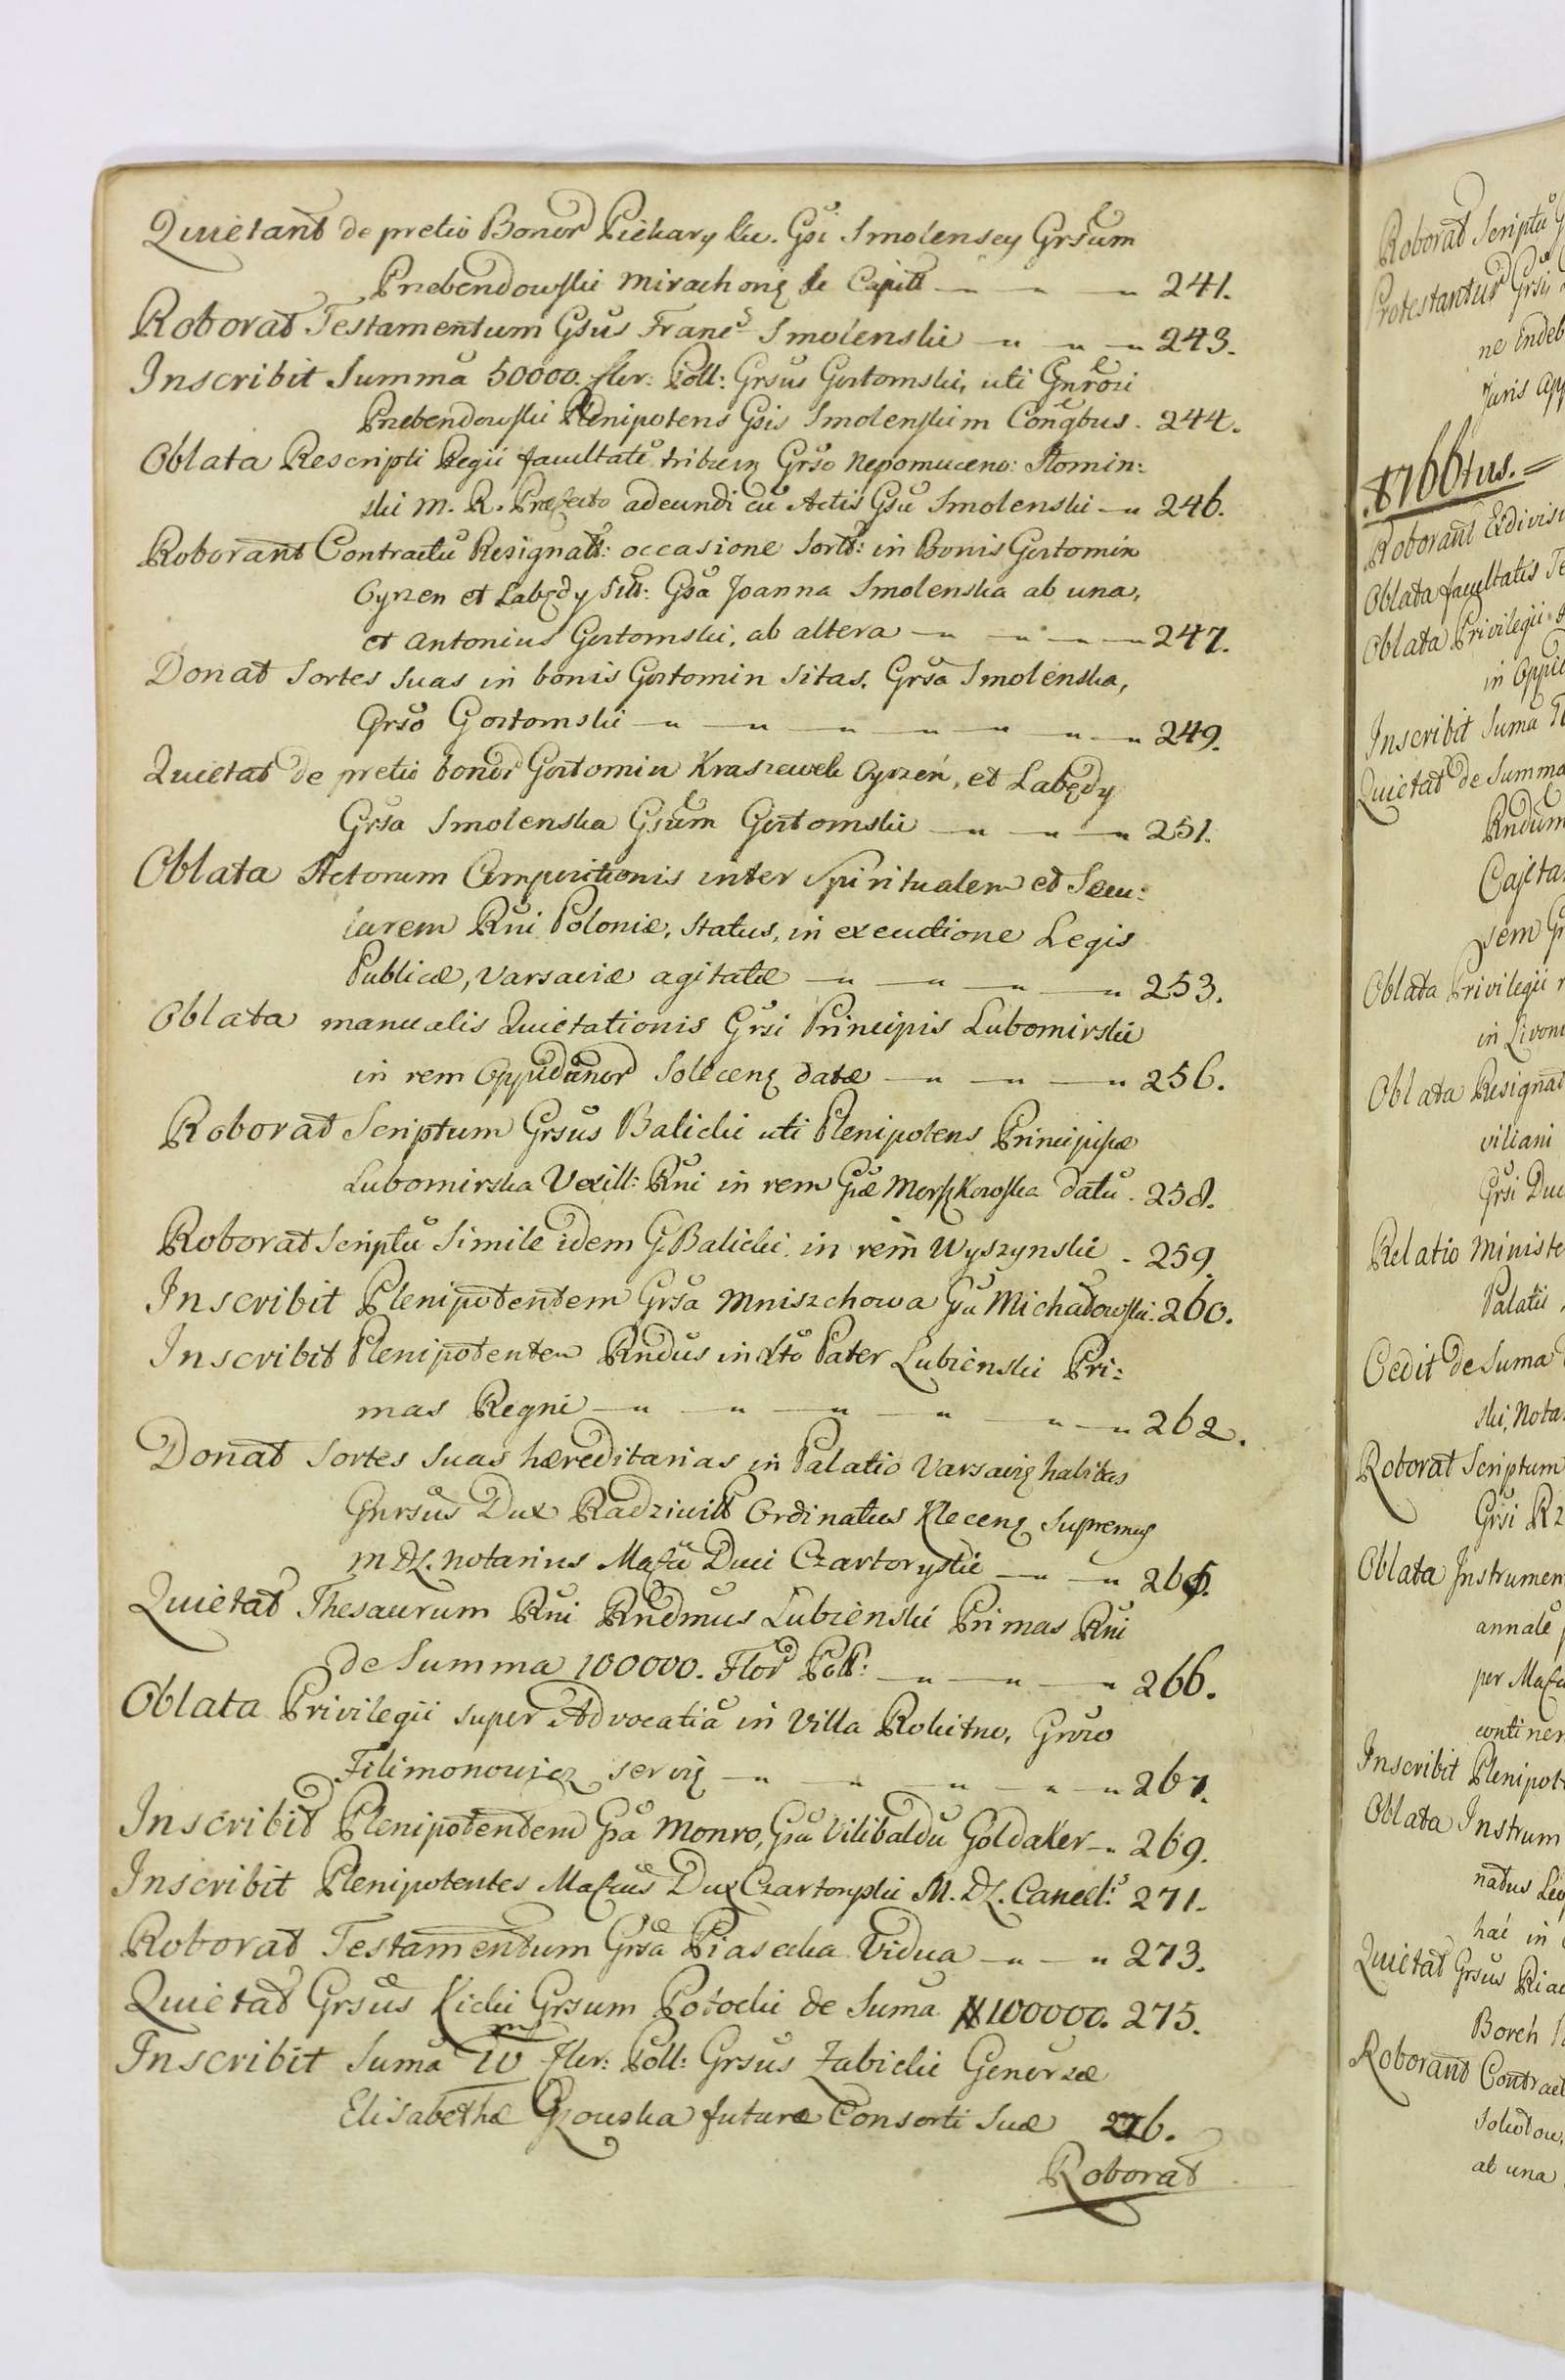 Quietant de pretio Bonor Piekary &c. Gsi Smolenscy Grsum
Przebendowski Mirachoniȩ &c Capitt — " — " — " 241.
Roborat Testamentum Gsus Franc Smolenski — " — " — " 243.
Inscribit Summa 50000. flor: Poll: Grsus Gostomski, uti Gnrosi
Przebendowski Plenipotens Gsis Smolenskim Congbus. 244.
Oblata Rescripti Regii facultate tribuen Grso Nepomuceno: Slomin:
ski M. R. Præfecto adeundi cu Actis Gsu Smolenski — " 246.
Roborant Contractu Resignatt: occasione Sort: in Bonis Gostomin
Cyrzen et Labędy Sitt: Gsa Joanna Smolenska ab una,
et Antonius Gostomski, ab altera — " — " — " — " 247.
Donat Sortes Suas in bonis Gostomin Sitas. Grsa Smolenska,
Grso Gostomski — " — " — " — " — " — " — " 249.
Quietat de pretio bonor Gostomin Kraszewek Cyrzeń, et Labędy
Grsa Smolenska Gsum Gostomski — " — " — " 251.
Oblata Actorum Compositionis inter Spiritualem et Secu:
larem Rni Poloniæ, Status, in executione Legis
Publicæ, Varsaviæ agitatæ — " — " — " — " 253.
Oblata manualis Quietationis Grsi Principis Lubomirski
in rem Oppidanor Solecenȩ datæ — " — " — " 256.
Roborat Scriptum Grsus Balicki uti Plenipotens Principisæ
Lubomirska Vexill: Rni in rem Gsæ Morszkowska datu. 258.
Roborat Scriptu Simile idem G. Balicki in rem Wyszynski - 259.
Inscribit Plenipotentem Grsa Mniszchowa Gsu Michałowski. 260.
Inscribit Plenipotentem Rndus in Xto Pater Lubienski Pri:
mas Regni — " — " — " — " — " — " 262.
Donat Sortes Suas hæreditarias in Palatio Varsaviȩ habitas
Gnrsus Dux Radziwill Ordinatus Klecenȩ Supremus
M DL. Notarius Mafico Duci Czartoryski — " — " 265.
Quietat Thesaurum Rni Rndmus Lubienski Primas Rni
de Summa 100000. Flor Poll: — " — " — " 266.
Oblata Privilegii super Advocatia in Villa Rokitno, Groso
Filimonowicz serviȩ — " — " — " — " — " 267.
Inscribit Plenipotentem Gsa Monro, Gsu Vilibaldu Goldaker — " 269.
Inscribit Plenipotentes Maficus Dux Czartoryski M. DL. Cancell: 271.
Roborat Testamentum Grsa Piasecka Vidua — " — " 273.
Quietat Grsus Kicki Grsum Potocki de Suma # 100000. 275.
Inscribit Suma IV m flor: Poll: Grsus Zabicki Generosæ
Elisabethæ Gzowska futuræ Consorti Suæ 276.
Roborat
Roborat Scriptu G
Protestantur Grsi
ne Indeb
Juris App
1766tus. =
Roborant Exdivisi
Oblata facultatis Te
Oblata Privilegii
in Oppid
Inscribit Suma
Quietat de Summa
Rndum
Cajeta
sem Gr
Oblata Privilegii
in Livon
Oblata Resignat
viliani
Grsi Duc
Relatio Ministe
Palatii
Cedit de Suma
ski, Nota
Roborat Scriptum
Grsi Rz
Oblata Instrumen
annale
per Mafic
continen
Inscribit Plenipot
Oblata Instrum
natus Leo
hac in
Quietat Grsus Piac
Borch
Roborant Contract
Solutou
ab una